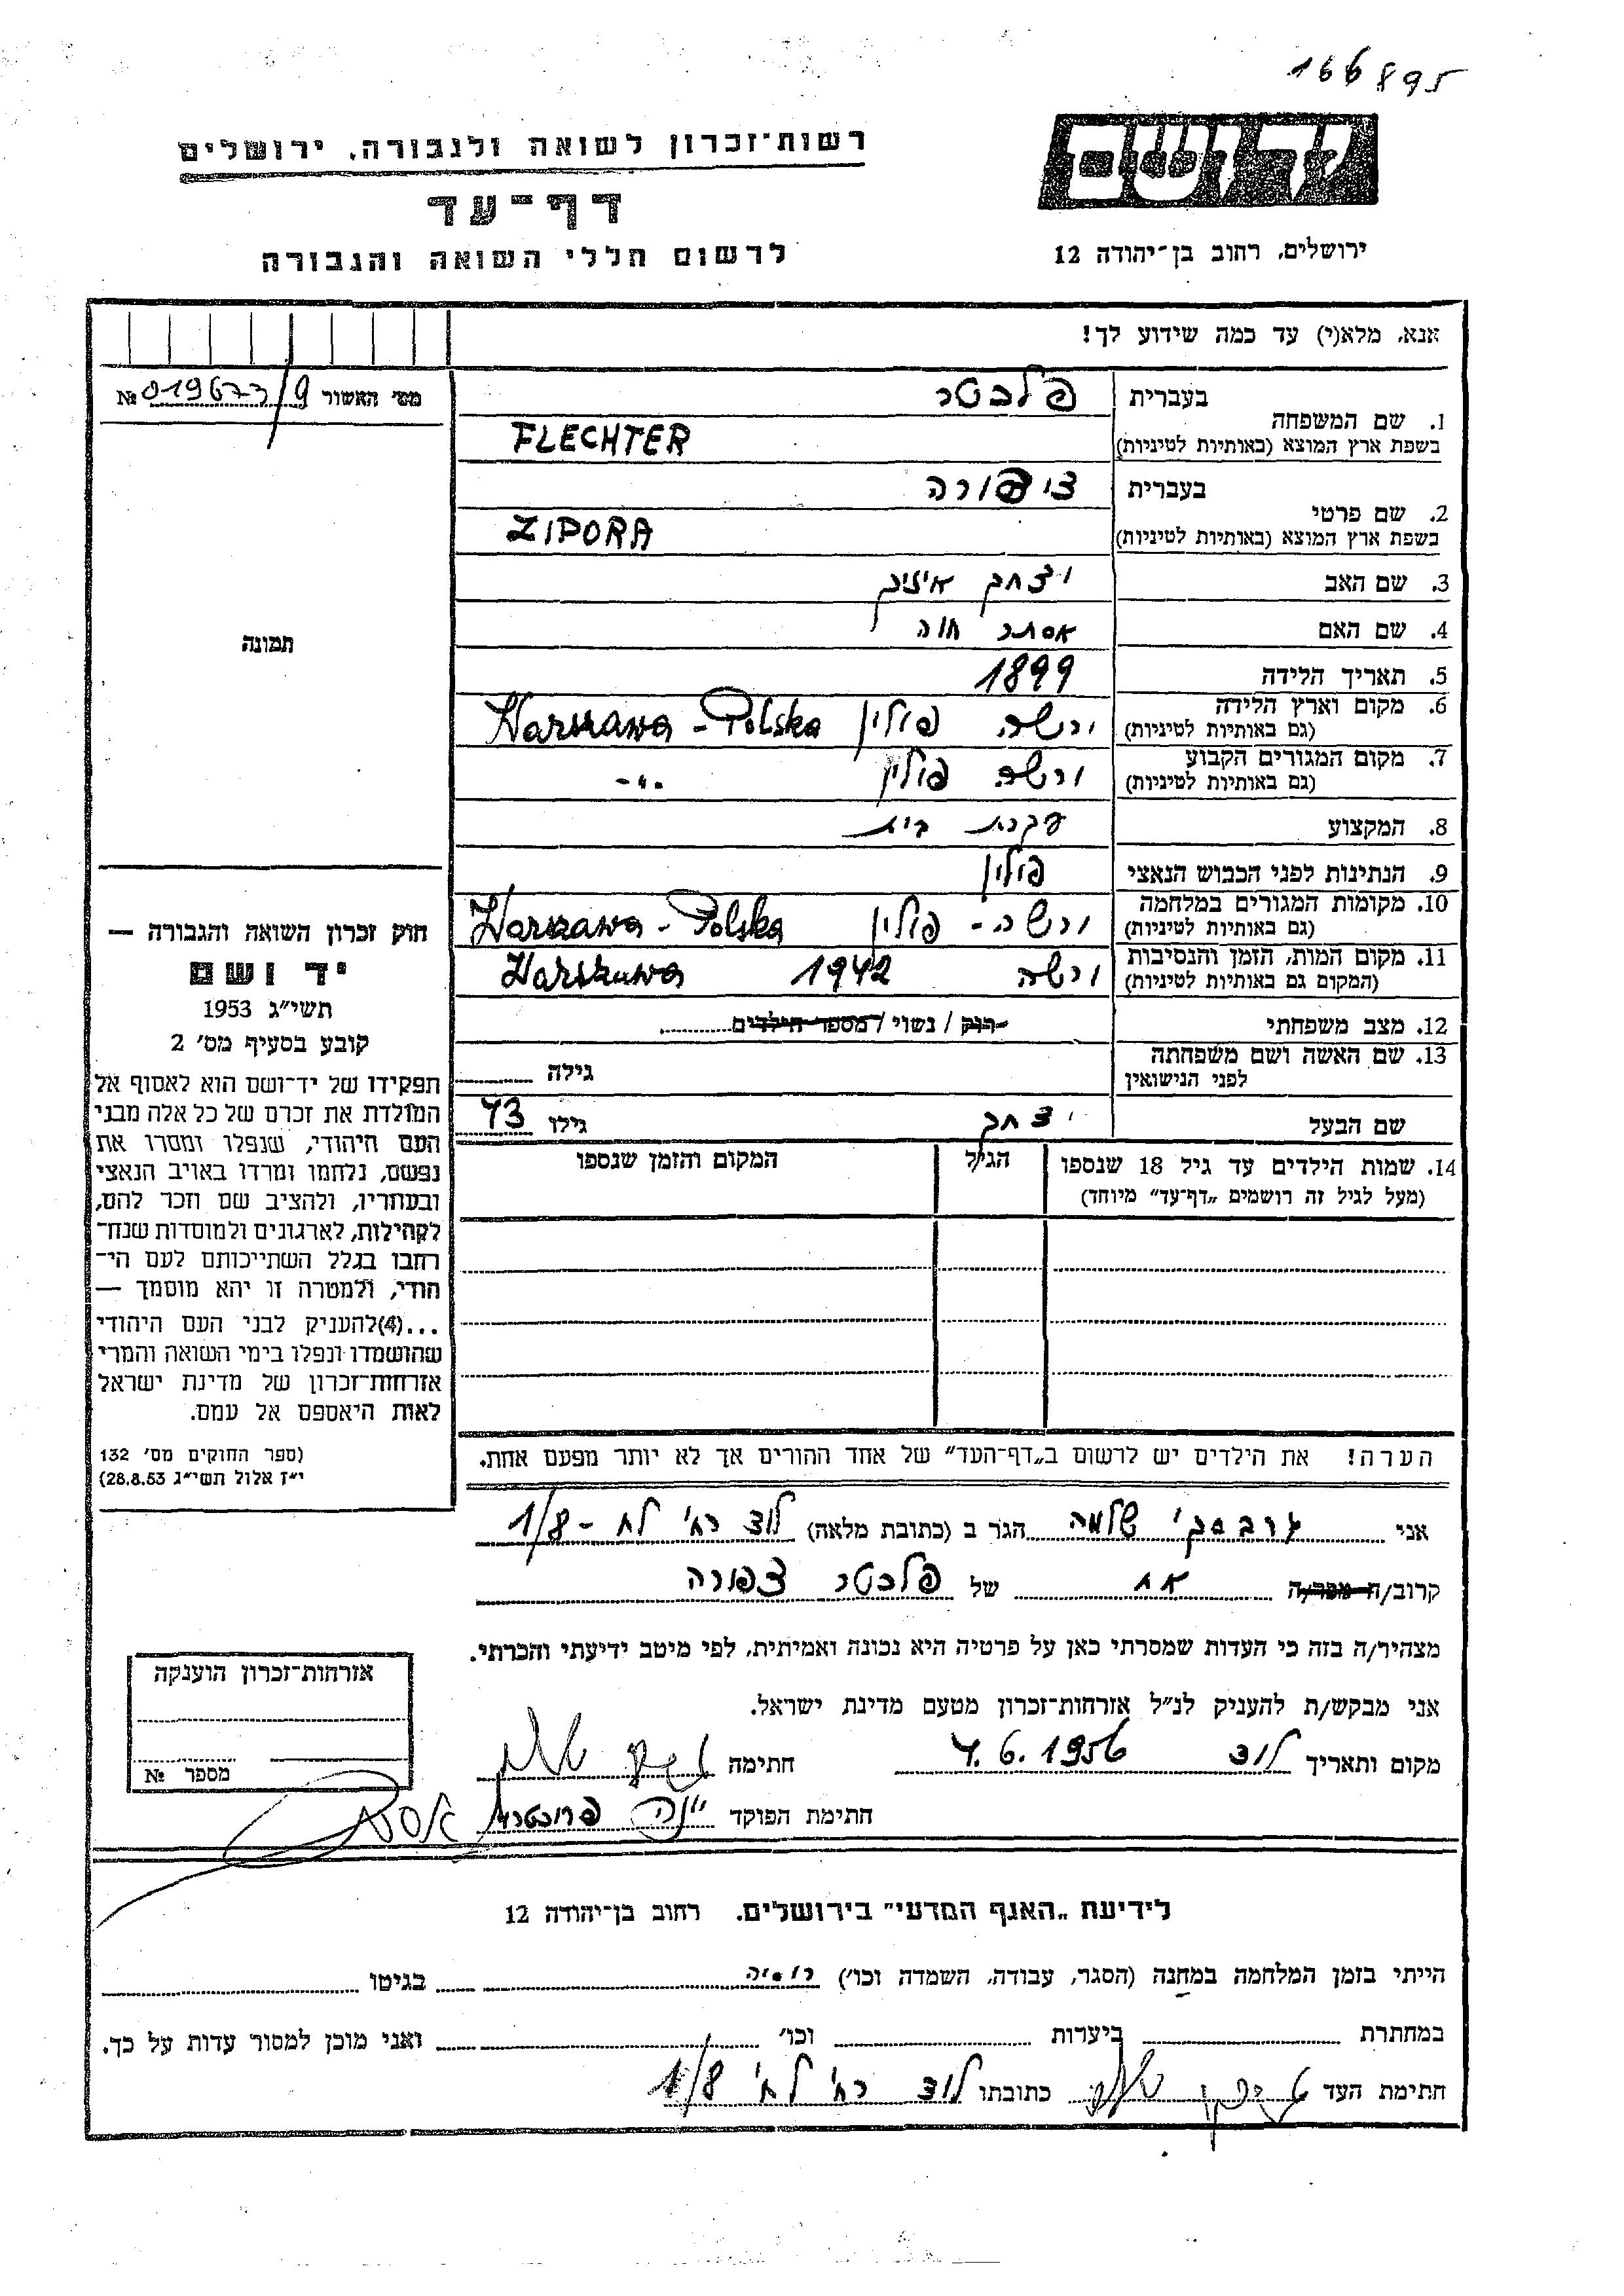 166895
ידושם
רשות־זכרון לשואה ולגבורה, ירושלים
דף־עד
לרשום חללי השואה והגבורה
ירושלים, רחוב בן־יהודה 12
אנא, מלא(י) עד כמה שידוע לך!
מס׳ האשור № 019673/9
1. שם המשפחה
בעברית פלכטר
בשפת ארץ המוצא (באותיות לטיניות) FLECHTER
2. שם פרטי
בעברית ציפורה
בשפת ארץ המוצא (באותיות לטיניות) ZIPORA
3. שם האב יצחק איציק
4. שם האם אסתר חוה
5. תאריך הלידה 1899
6. מקום וארץ הלידה (גם באותיות לטיניות) ורשה פולין Warszawa - Polska
7. מקום המגורים הקבוע (גם באותיות לטיניות) ורשה פולין -"-
8. המקצוע עקרת בית
9. הנתינות לפני הכבוש הנאצי פולין
10. מקומות המגורים במלחמה (גם באותיות לטיניות) ורשה - פולין Warszawa - Polska
11. מקום המות, הזמן והנסיבות (המקום גם באותיות לטיניות) ורשה 1942 Warszawa
12. מצב משפחתי רווק / נשוי / מספר הילדים
13. שם האשה ושם משפחתה לפני הנישואין
גילה
שם הבעל יצחק גילו 43
14. שמות הילדים עד גיל 18 שנספו
(מעל לגיל זה רושמים „דף־עד״ מיוחד)
הגיל
המקום והזמן שנספו
תמונה
חוק זכרון השואה והגבורה —
יד ושם
תשי״ג 1953
קובע בסעיף מס׳ 2
תפקידו של יד־ושם הוא לאסוף אל
המולדת את זכרם של כל אלה מבני
העם היהודי, שנפלו ומסרו את
נפשם, נלחמו ומרדו באויב הנאצי
ובעוזריו, ולהציב שם וזכר להם,
לקהילות, לארגונים ולמוסדות שנח־
רחבו בגלל השתייכותם לעם הי־
הודי, ולמטרה זו יהא מוסמך —
...(4)להעניק לבני העם היהודי
שהושמדו ונפלו בימי השואה והמרי
אזרחות־זכרון של מדינת ישראל
לאות היאספם אל עמם.
(ספר החוקים מס׳ 132
י״ז אלול תשי״ג 28.8.53)
הערה! את הילדים יש לרשום ב„דף־העד״ של אחד ההורים אך לא יותר מפעם אחת.
אני שלמה הגר ב (כתובת מלאה) לוד רח׳ לח - 1/8
קרוב/ה מכר/ה אח של פלכטר צפורה
מצהיר/ה בזה כי העדות שמסרתי כאן על פרטיה היא נכונה ואמיתית, לפי מיטב ידיעתי והכרתי.
אני מבקש/ת להעניק לנ״ל אזרחות־זכרון מטעם מדינת ישראל.
מקום ותאריך לוד 4.6.1956 חתימה
חתימת הפוקד
אזרחות־זכרון הוענקה
מספר №
לידיעת „האגף המדעי״ בירושלים, רחוב בן־יהודה 12
הייתי בזמן המלחמה במחנה (הסגר, עבודה, השמדה וכו׳) רוסיה בגיטו
במחתרת ביערות וכו׳ ואני מוכן למסור עדות על כך.
חתימת העד כתובתו לוד רח׳ לח׳ 1/8